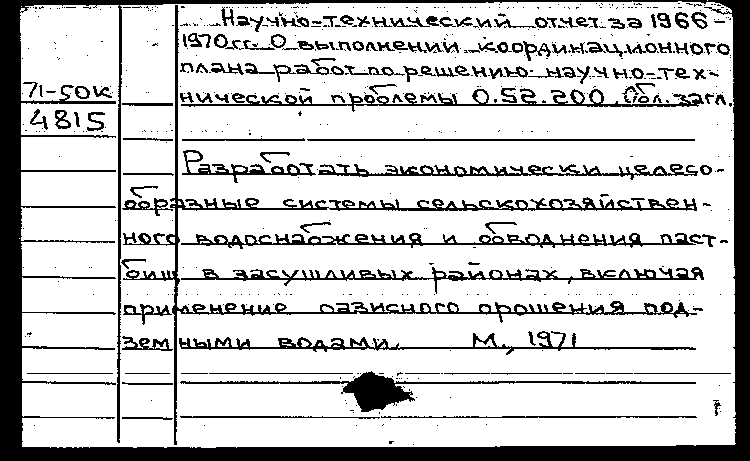 Научно-технический отчет за 1966-
1970гг. О выполнении координационного
плана работ по решению научно-тех-
71-50к
нической проблемы 0.52.200. Обл. загл.
4815
Разработать экономически целесо-
образные системы сельскохозяйствен-
ного водоснабжения и обводнения паст-
бищ в засушливых районах, включая
применение оазисного орошения под-
земными водами. М., 1971